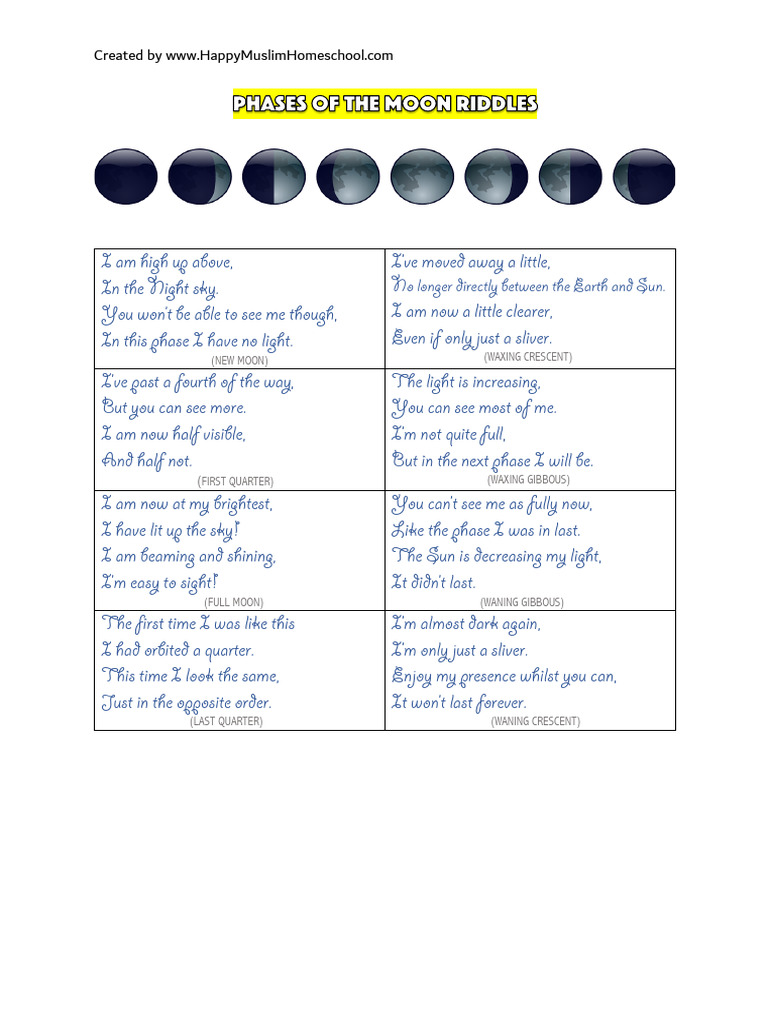 Created by www.HappyMuslimHomeschool.com
PHASES OF THE MOON RIDDLES
I am high up above,
In the Night sky.
You won't be able to see me though,
In this phase I have no light.
(NEW MOON)
I've moved away a little,
No longer directly between the Earth and Sun.
I am now a little clearer,
Even if only just a sliver.
(WAXING CRESCENT)
I've past a fourth of the way,
But you can see more.
I am now half visible,
And half not.
(FIRST QUARTER)
The light is increasing,
You can see most of me.
I'm not quite full,
But in the next phase I will be.
(WAXING GIBBOUS)
I am now at my brightest,
I have lit up the sky!
I am beaming and shining,
I'm easy to sight!
(FULL MOON)
You can't see me as fully now,
Like the phase I was in last.
The Sun is decreasing my light,
It didn't last.
(WANING GIBBOUS)
The first time I was like this
I had orbited a quarter.
This time I look the same,
Just in the opposite order.
(LAST QUARTER)
I'm almost dark again,
I'm only just a sliver.
Enjoy my presence whilst you can,
It won't last forever.
(WANING CRESCENT)